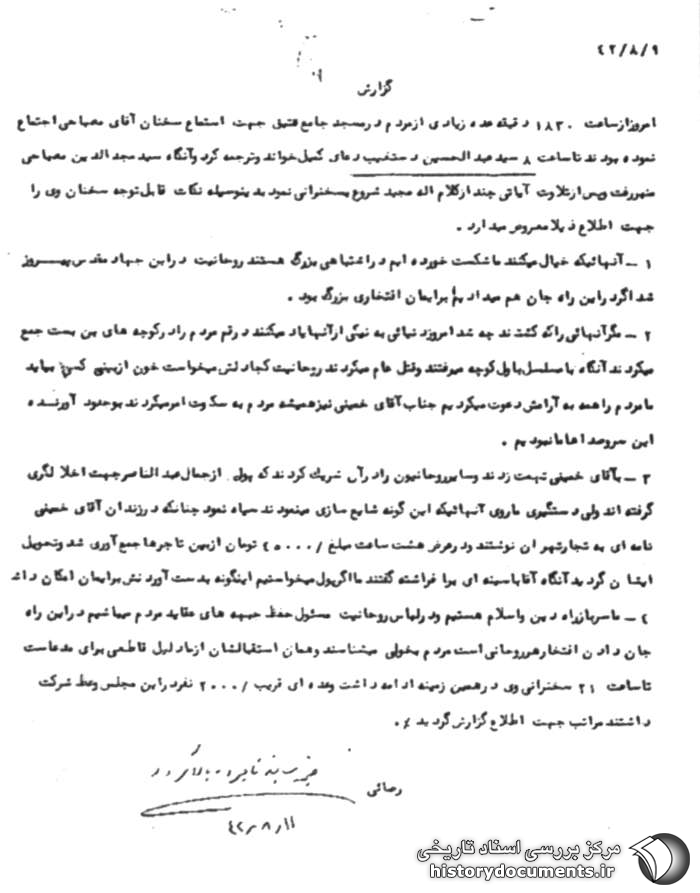 ۴۲/۸/۹
گزارش
امروز از ساعت ۱۸۳۰ دقیقه عده زیادی از مردم در مسجد جامع عتیق جهت استماع سخنان آقای مصباحی اجتماع
نموده بودند تا ساعت ۸ سید عبدالحسین دستغیب دعای کمیل خواند و ترجمه کرد و آنگاه سید مجدالدین مصباحی
منبر رفت و پس از تلاوت آیاتی چند از کلام اله مجید شروع بسخنرانی نمود بدینوسیله نکات قابل توجه سخنان وی را
جهت اطلاع ذیلا معروض میدارد .
۱ - آنهائیکه خیال میکنند ما شکست خورده ایم در اشتباهی بزرگ هستند روحانیت در این جهاد مقدس پیروز
شد اگر در این راه جان هم میدادیم برایمان افتخاری بزرگ بود .
۲ - مگر آنهائی را که کشتند چه شد امروز دنیائی به نیکی از آنها یاد میکنند در قم مردم را در کوچه های بن بست جمع
میکردند آنگاه با مسلسل باول کوچه میرفتند و قتل عام میکردند روحانیت کجا دلش میخواست خون از بینی کسی بیاید
ما مردم را همه به آرامش دعوت میکردیم جناب آقای خمینی نیز همیشه مردم به سکوت امر میکردند بوجود آورنده
این سروصداها ما نبودیم .
۳ - بآقای خمینی تهمت زدند و سایر روحانیون را در آن شریک کردند که پول از جمال عبدالناصر جهت اخلالگری
گرفته اند ولی دستگیری ما روی آنهائیکه این گونه شایع سازی مینمودند سیاه نمود چنانکه در زندان آقای خمینی
نامه ای به تجار تهران نوشتند و در عرض هشت ساعت مبلغ /۴۵۰۰۰ تومان از بین تاجرها جمع آوری شد و تحویل
ایشان گردید آنگاه آقا با سینه ای برافراشته گفتند ما اگر پول میخواستیم اینگونه بدست آوردنش برایمان امکان داشت
۴ - ما سرباز راه دین و اسلام هستیم و در لباس روحانیت مسئول حفظ جبهه های عقاید مردم میباشیم در این راه
جان دادن افتخار هر روحانی است مردم بخوبی میشناسند و همان استقبالشان از ما دلیل قاطعی برای مدعاست
تا ساعت ۲۱ سخنرانی وی در همین زمینه ادامه داشت و عده ای قریب /۲۰۰۰ نفر در این مجلس وعظ شرکت
داشتند مراتب جهت اطلاع گزارش گردید .
رضائی
۴۲/۸/۱۱
مرکز بررسی اسناد تاریخی
historydocuments.ir